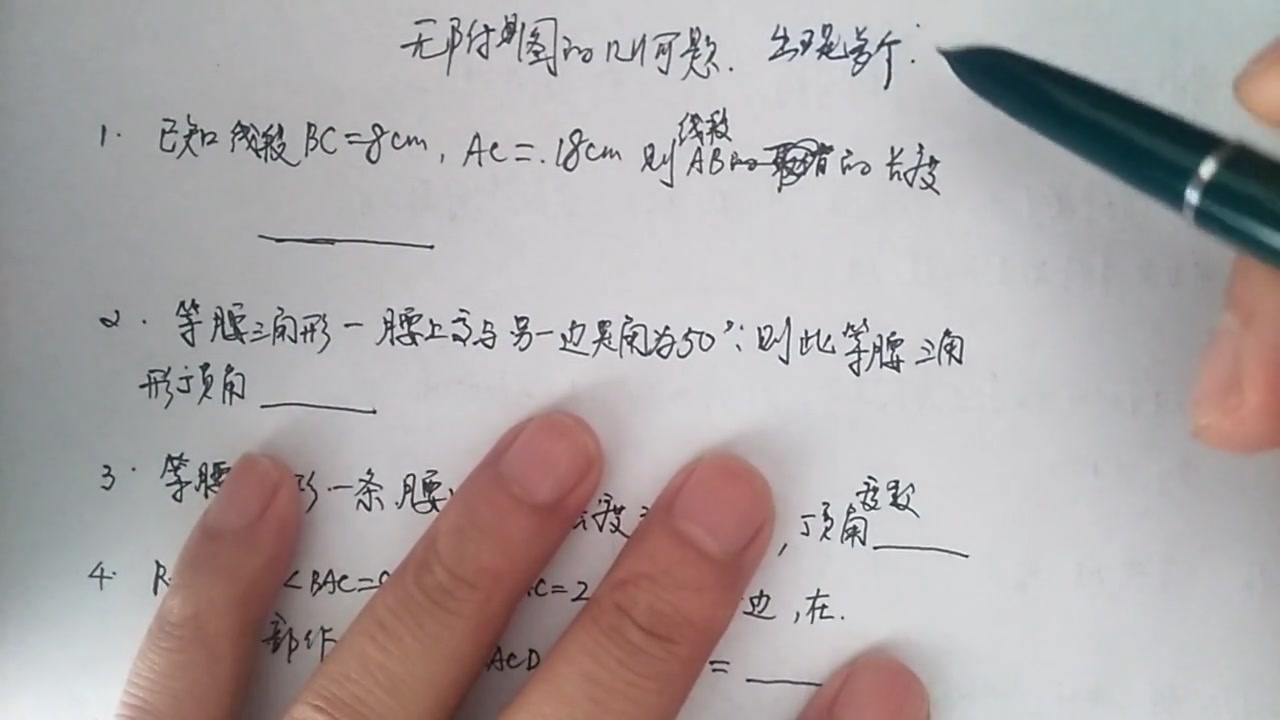 无附图的几何题. 出现是多个:
1. 已知线段BC=8cm, AC=.18cm 则线段AB的 的长度
2. 等腰三角形一腰上高与另一边夹角为50°: 则此等腰三角
形顶角
3. 等腰 形一条腰 长度 , 顶角度数
4. R ∠BAC= C=2 边,在.
部作 ACD =